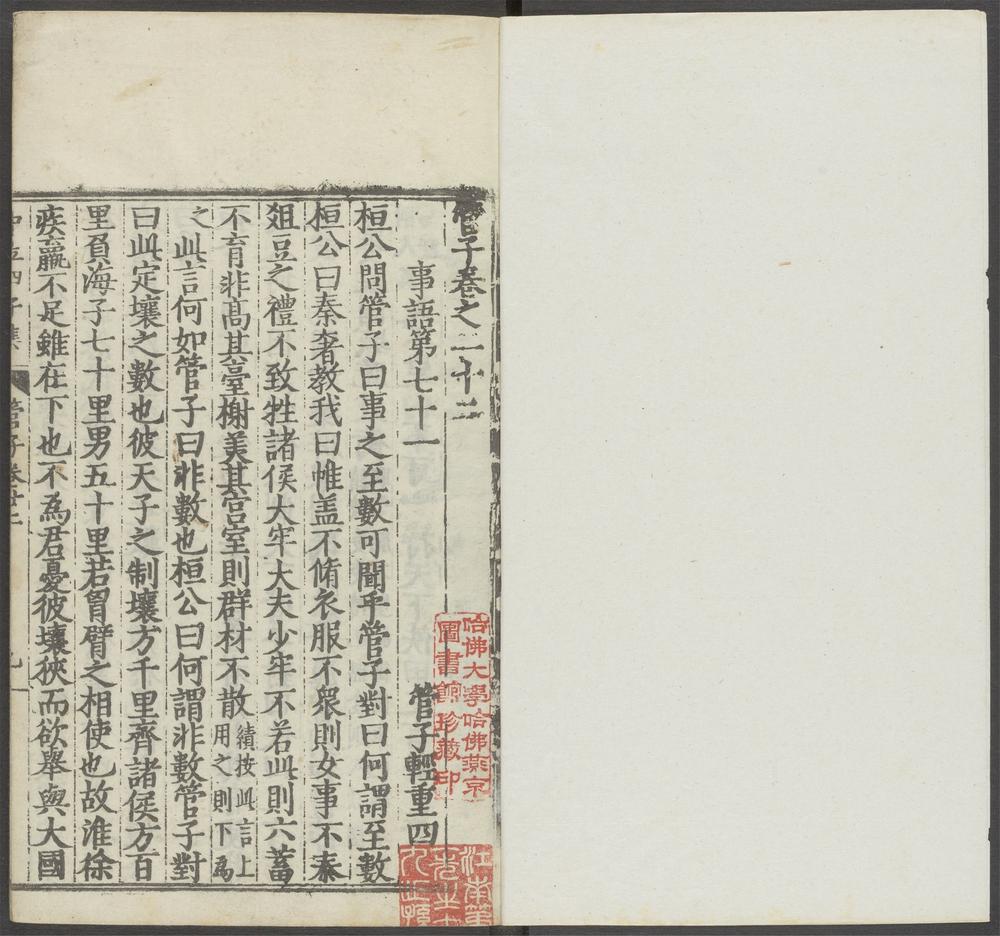 管子卷之二十二
事語第七十一 管子輕重四
桓公問管子曰事之至數可聞乎管子對曰何謂至數
桓公曰秦奢教我曰帷盖不脩衣服不衆則女事不泰
俎豆之禮不致牲諸侯太牢大夫少牢不若此則六蓄
不育非髙其臺榭美其宫室則群材不散
績按此言上
用之則下爲
之
此言何如管子曰非數也桓公曰何謂非數管子對
曰此定壤之數也彼天子之制壤方千里齊諸侯方百
里負海子七十里男五十里若胷臂之相使也故淮徐
疾羸不足雖在下也不為君憂彼壤狹而欲舉與大國
管子卷廿二
哈佛大學哈佛燕京
圖書館珍藏印
江南第